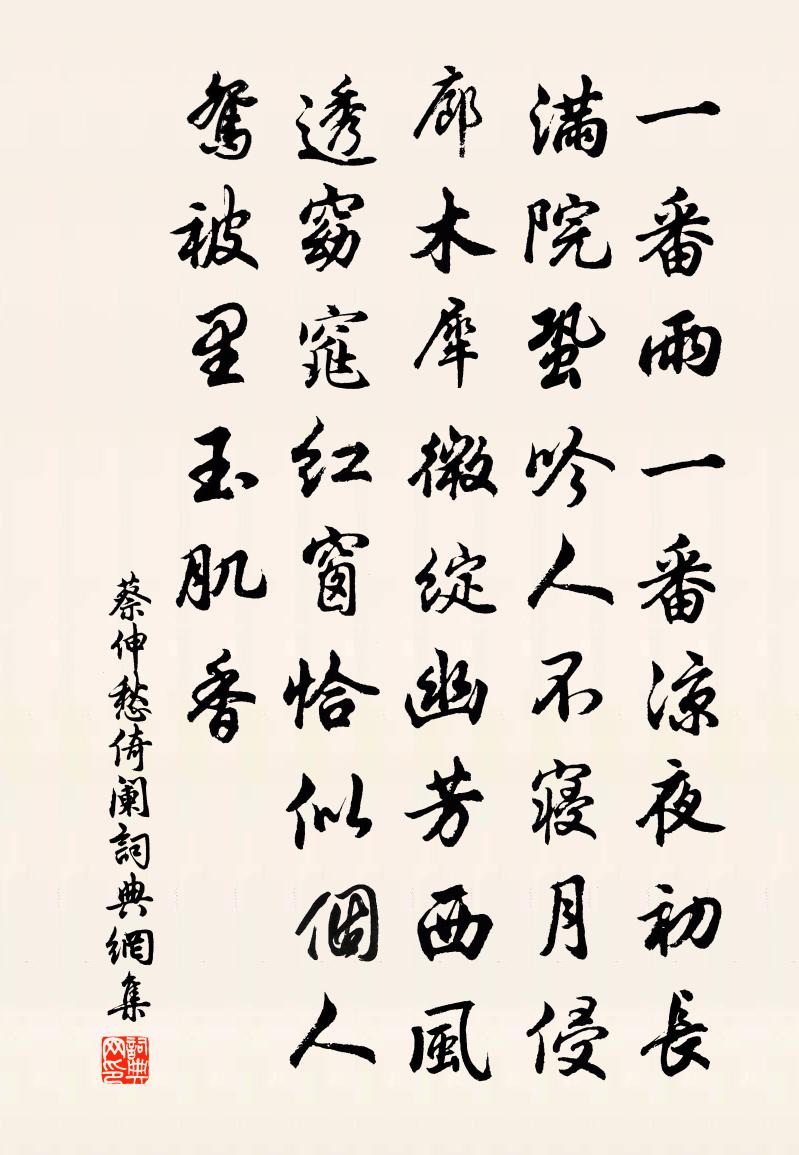 一番雨一番涼夜初長
滿院蛩吟人不寝月侵
廊木犀微綻幽芳西風
透窈窕紅窗恰似個人
鴛被里玉肌香
蔡伸愁倚阑詞典網集
詞典网印